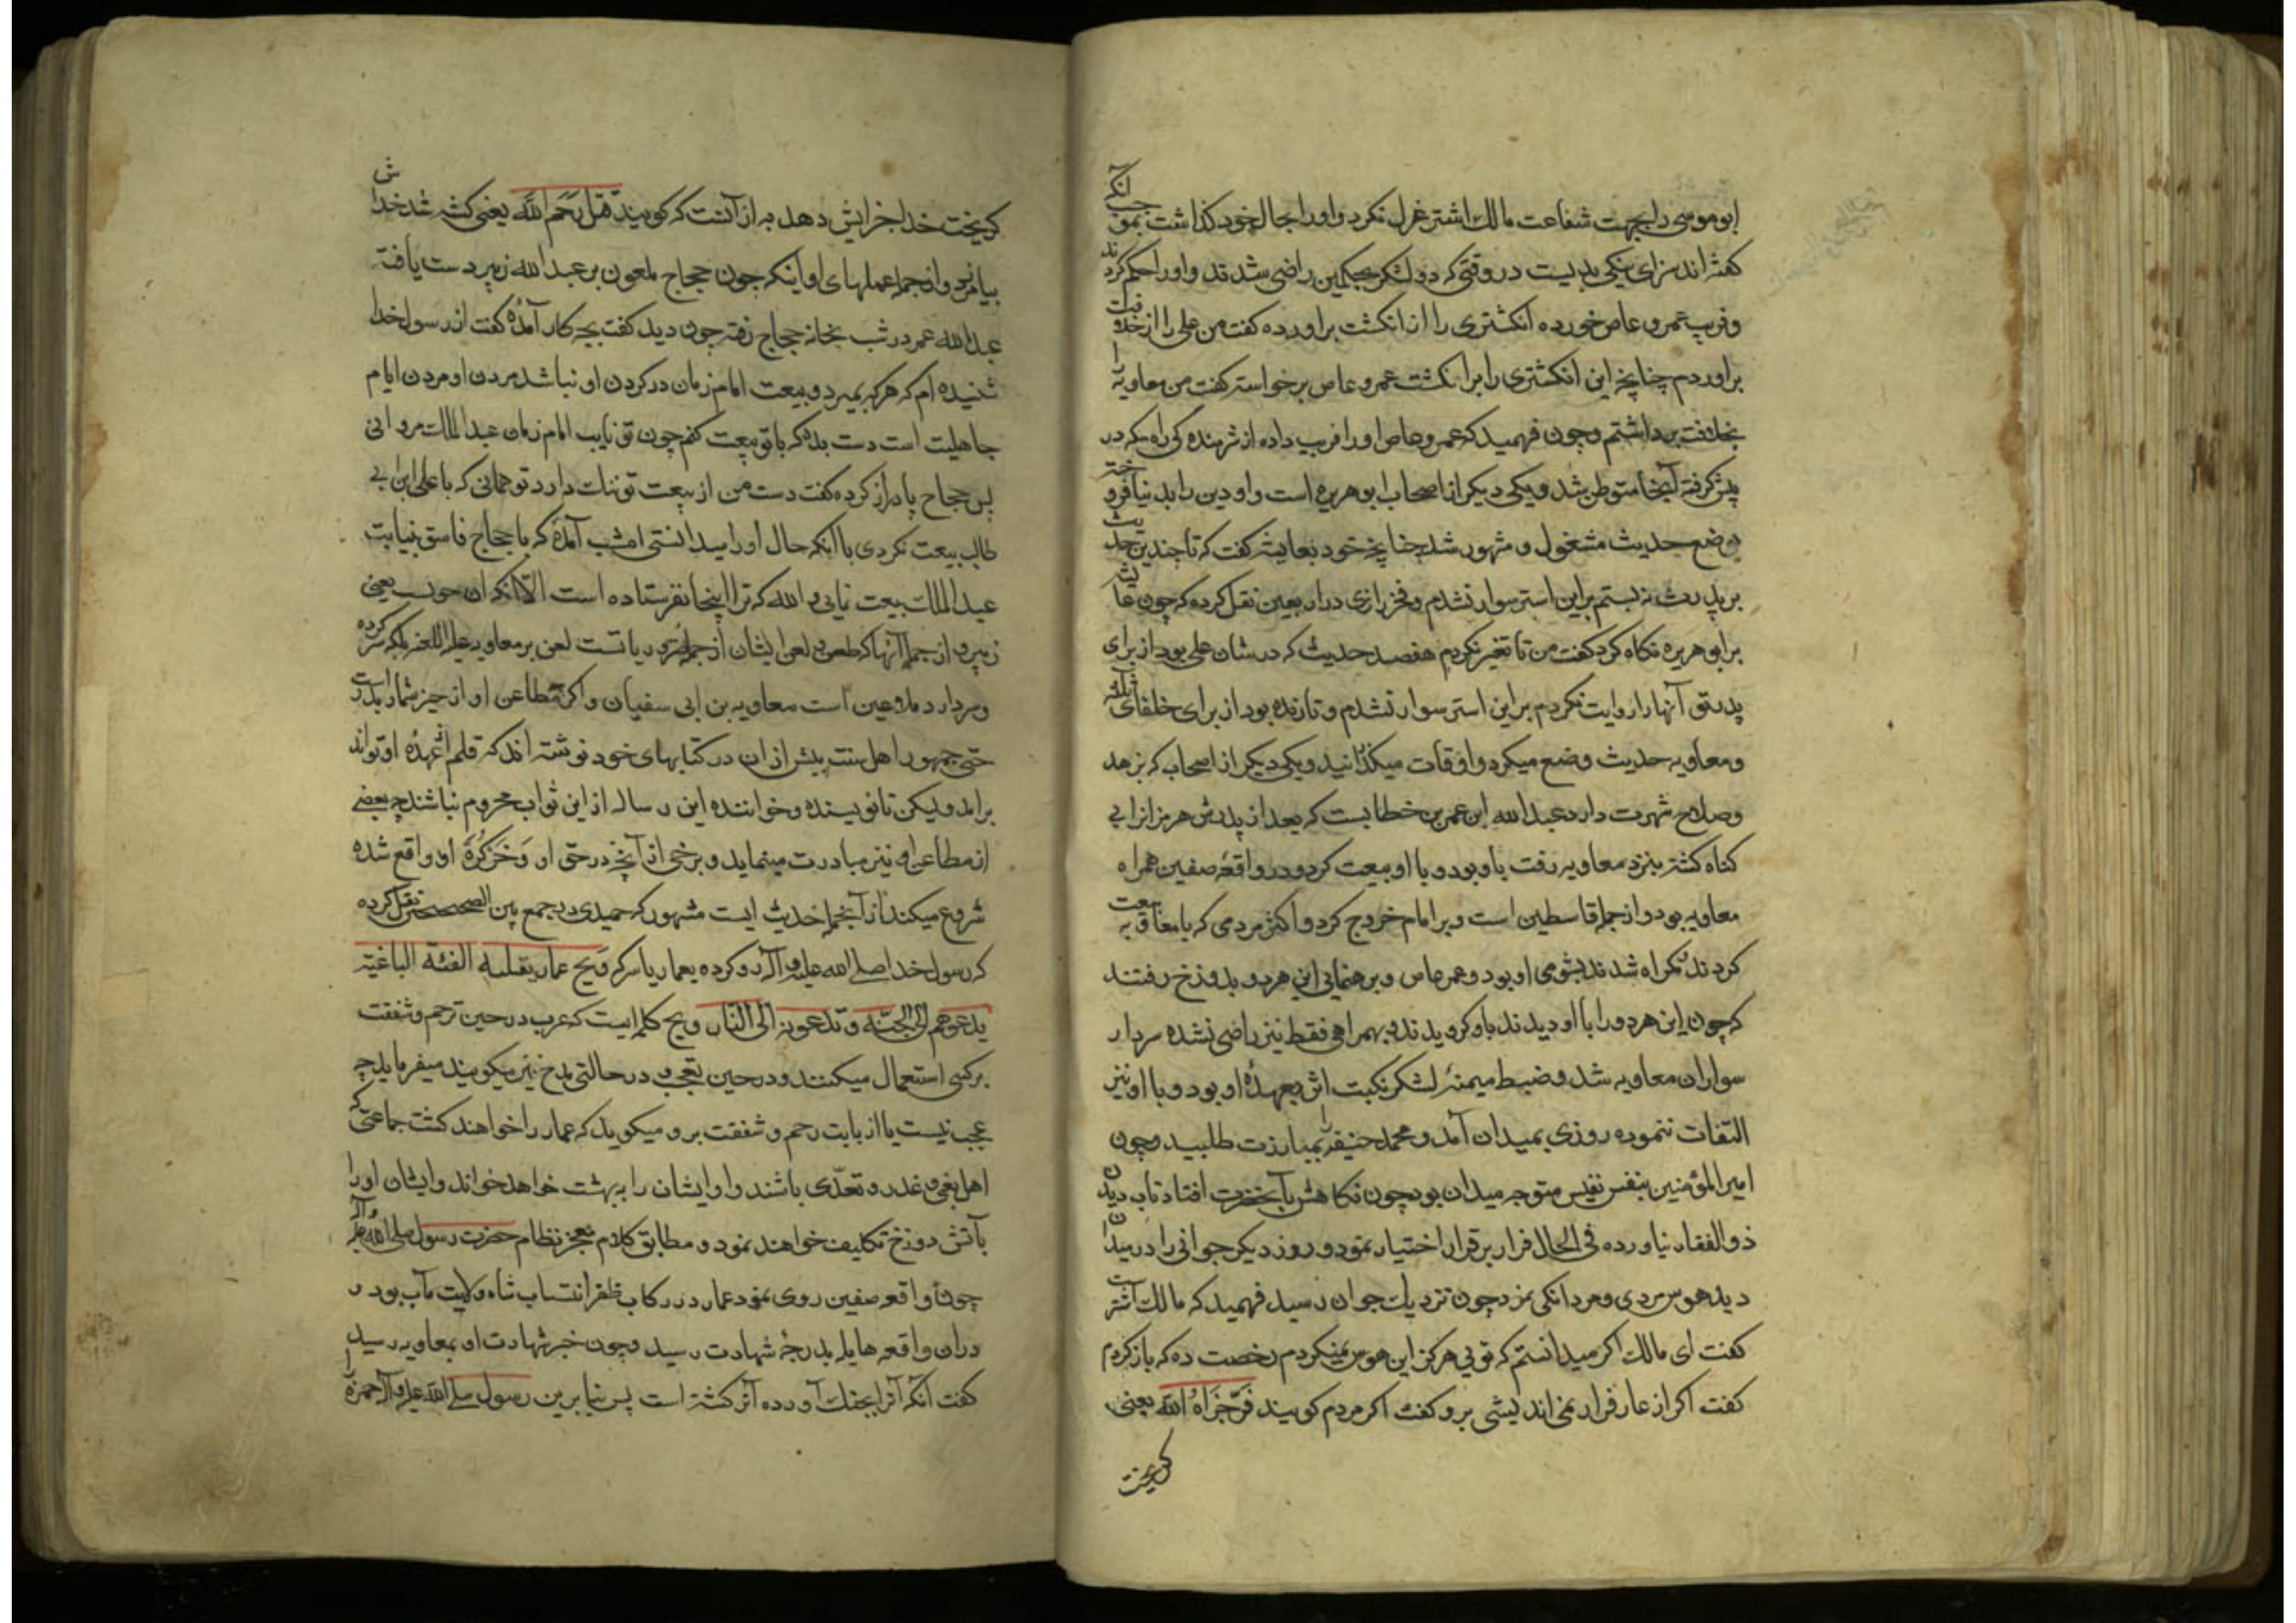 ابوموسی را بجهت شفاعت مالك اشتر عزل نکرد و او را بحال خود کذاشت بموجب انکه
کفته اند سزای نیکی بدیست در وقتی که دو لشکر بحکمین راضی شدند و او را حکم کردند
و فریب عمرو عاص خورده انکشتری را از انکشت براورده کفت من علی را از خلافت
براوردم چنانچه این انکشتری را بر انکشت عمرو عاص برخواسته کفت من معاویه را
بخلافت برداشتم و چون فهمید که عمرو عاص او را فریب داده از شرمندکی راه مکه در
پیش کرفته آنجا متوطن شد و یکی دیکر از اصحاب ابوهریره است و او دین را بدنیا فروخته
بوضع حدیث مشغول و مشهور شد چنانچه خود بعایشه کفت که تا چندین حدیث
بر پدرت نه بستم براین استر سوار نشدم و فخر رازی در اربعین نقل کرده که چون عایشه
بر ابوهریره نکاه کرد کفت من تا تغیر نکردم هفصد حدیث که در شان علی بود از برای
پدر تو آنها را روایت نکردم بر این استر سوار نشدم و تا زنده بود از برای خلفای ثلاثه
و معاویه حدیث وضع میکرد و اوقات میکذرانید و یکی دیکر از اصحاب که بزهد
و صلاح شهرت دارد عبدالله ابن عمر بن خطابست که بعد از پدرش هرمزان را بی
کناه کشته بنزد معاویه رفت باو بود و با او بیعت کرد و در واقعهٔ صفین همراه
معاویه بود و از جمله قاسطین است و بر امام خروج کرد و اکثر مردمی که با معاویه بیعت
کردند کمراه شدند بشومی او بود و عمر عاص و برهنمایی این هر دو بدوزخ رفتند
که چون این هر دو را با او دیدند باو کرویدند و بهمراهی فقط نیز راضی نشده سردار
سواران معاویه شد و ضبط میمنهٔ لشکر نکبت اثر بعهدهٔ او بود و با او نیز
التفات ننموده روزی بمیدان آمد و محمد حنفیه را بمبارزت طلبید و چون
امیرالمؤمنین بنفس نفیس متوجه میدان بود چون نکاهش بآنحضرت افتاد تاب دیدن
ذوالفقار نیاورده فی الحال فرار برقرار اختیار نمود و روز دیکر جوانی را در میدان
دید هوس مردی و مردانکی نمود چون نزدیك جوان رسید فهمید که مالك اشتر است
کفت ای مالك اکر میدانستم که تویی هرکز این هوس نمیکردم رخصت ده که بازکردم
کفت اکر از عار فرار نمی اندیشی برو کفت اکر مردم کویند فَرّ جَزَاهُ اللّه یعنی
کریخت
کریخت خدا جزایش دهد به از آنست که کویند قُتِلَ رَحِمَ اللّه یعنی کشته شد خدایش
بیامرزد و از جمله عملهای او اینکه چون حجاج ملعون بر عبدالله زبیر دست یافته
عبدالله عمر در شب بخانه حجاج رفته چون دید کفت بچه کار آمدهٔ کفت از رسولخدا
شنیده ام که هر که بمیرد و بیعت امام زمان در کردن او نباشد مردن او مردن ایام
جاهلیت است دست بده که با تو بیعت کنم چون تو نایب امام زمان عبدالملك مروانی
پس حجاج پا دراز کرده کفت دست من از بیعت تو ننك دارد تو همانی که با علی ابن ابی
طالب بیعت نکردی با آنکه حال او را میدانستی امشب آمدهٔ که با حجاج فاسق بنیابت
عبدالملك بیعت نمایی والله که ترا اینجا نفرستاده است الا آنکه ان چوب یعنی
زبیر و از جمله آنها که طعن و لعن ایشان از جمله ضروریاتست لعن بر معاویه علیه اللعنه بلکه سرکرده
و سردار ملاعین است معاویه بن ابی سفیان و اکر مطاعن او از حیز شمار بدر است
حتی جمهور اهل سنت بیش از ان در کتابهای خود نوشته اند که قلم از عهدهٔ او تواند
براید ولیکن تا نویسنده و خواننده این رساله از این ثواب محروم نباشند چه بعضی
از مطاعن او نیز مبادرت مینماید و برخی از آنچه در حق او وَخز کُرَهُ او واقع شده
شروع میکند از آنجمله حدیث ایست مشهور که حمیدی در جمع بین الصحیحین نقل کرده
که رسول خدا صلی الله علیه و آله رو کرده بعمار یاسر که وَیح عمار یقتله الفئة الباغیة
یدعوهم الی الجنّه و یدعونه الی النار ویح کلمه ایست که عرب در حین ترحم و شفقت
بر کسی استعمال میکنند و در حین تعجب و در حالتی مدح نیز میکویند میفرماید چه
عجب نیست یا از بابت رحم و شفقت برو میکوید که عمار را خواهند کشت جماعتی که
اهل بغی و غدر و تعدّی باشند و او ایشان را به بهشت خواهد خواند و ایشان او را
بآتش دوزخ تکلیف خواهند نمود و مطابق کلام معجز نظام حضرت رسول صلی الله علیه و آله
چون واقعه صفین روی نمود عمار در رکاب ظفر انتساب شاه ولایت مآب بود و
دران واقعه هایله بدرجهٔ شهادت رسید و چون خبر شهادت او بمعاویه رسید
کفت آنکه آنرا بجنك آورده آنر کشته است پس بنا برین رسول صلی الله علیه و آله حمزه را